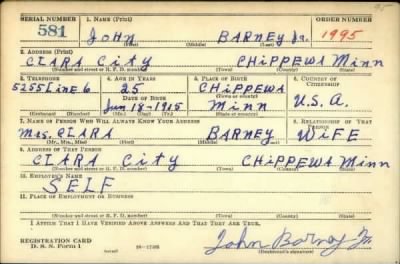 SERIAL NUMBER 1. NAME (Print) ORDER NUMBER
581 JOHN BARNEY Jr. 1995
(First) (Middle) (Last)
2. ADDRESS (Print)
CLARA CITY CHIPPEWA MINN
(Number and street or R. F. D. number) (Town) (County) (State)
3. TELEPHONE 4. AGE IN YEARS 5. PLACE OF BIRTH 6. COUNTRY OF CITIZENSHIP
5255 LINE 6 25 CHIPPEWA
DATE OF BIRTH (Town or county)
Jun 18-1915 MINN U.S.A.
(Exchange) (Number) (Mo.) (Day) (Yr.) (State or country)
7. NAME OF PERSON WHO WILL ALWAYS KNOW YOUR ADDRESS 8. RELATIONSHIP OF THAT PERSON
Mrs. CLARA BARNEY WIFE
(Mr., Mrs., Miss) (First) (Middle) (Last)
9. ADDRESS OF THAT PERSON
CLARA CITY CHIPPEWA MINN
(Number and street or R. F. D. number) (Town) (County) (State)
10. EMPLOYER'S NAME
SELF
11. PLACE OF EMPLOYMENT OR BUSINESS
(Number and street or R. F. D. number) (Town) (County) (State)
I AFFIRM THAT I HAVE VERIFIED ABOVE ANSWERS AND THAT THEY ARE TRUE.
REGISTRATION CARD
D. S. S. Form 1 John Barney Jr
(Registrant's signature)